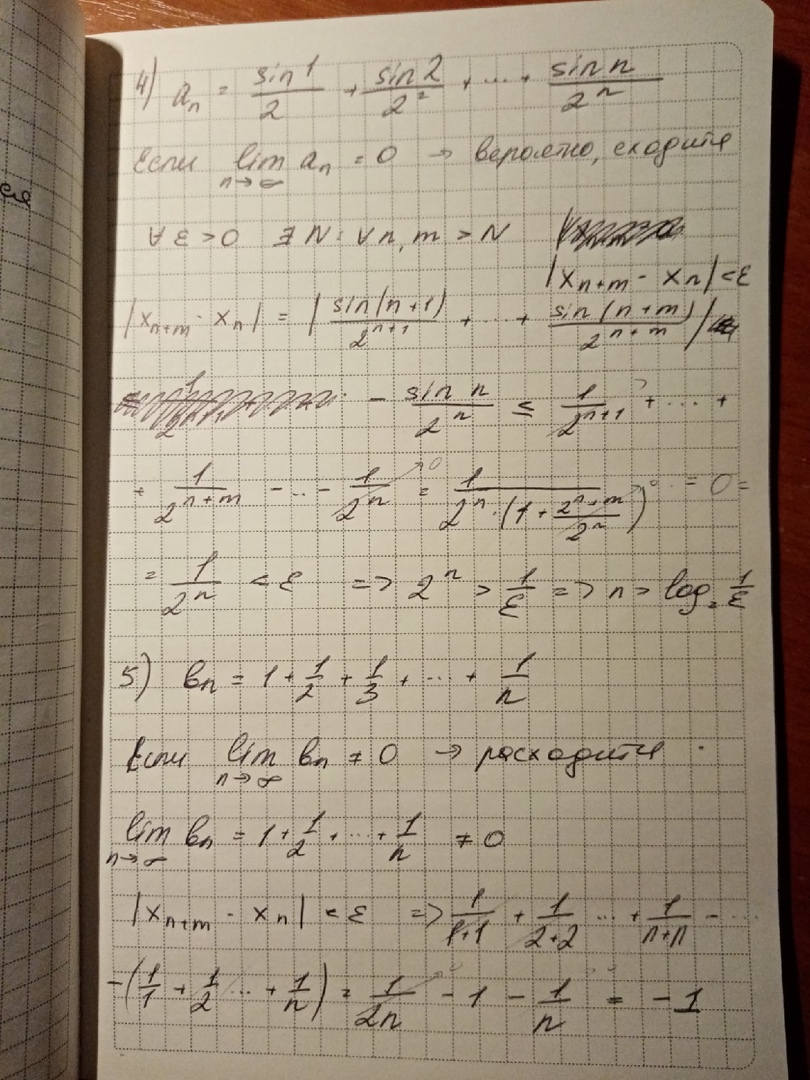 4) aₙ = sin 1/2 + sin 2/2² + ... + sin n/2ⁿ
Если lim n→∞ aₙ = 0 → вероятно, сходится
∀ ε > 0 ∃ N: ∀ n, m > N
|xₙ₊ₘ - xₙ| < ε
|xₙ₊ₘ - xₙ| = | sin(n+1)/2ⁿ⁺¹ + ... + sin(n+m)/2ⁿ⁺ᵐ |
- sin n/2ⁿ ≤ 1/2ⁿ⁺¹ + ... +
+ 1/2ⁿ⁺ᵐ - ... - 1/2ⁿ →0 = 1/(2ⁿ · (1 + 2ⁿ⁺ᵐ/2ⁿ)) →0 = 0 =
= 1/2ⁿ < ε => 2ⁿ > 1/ε => n > log₂ 1/ε
5) bₙ = 1 + 1/2 + 1/3 + ... + 1/n
Если lim n→∞ bₙ ≠ 0 → расходится
lim n→∞ bₙ = 1 + 1/2 + ... + 1/n ≠ 0
|xₙ₊ₘ - xₙ| < ε => 1/(1+1) + 1/(2+2) ... + 1/(n+n) - ...
- (1/1 + 1/2 ... + 1/n) = 1/2n →0 - 1 - 1/n = -1